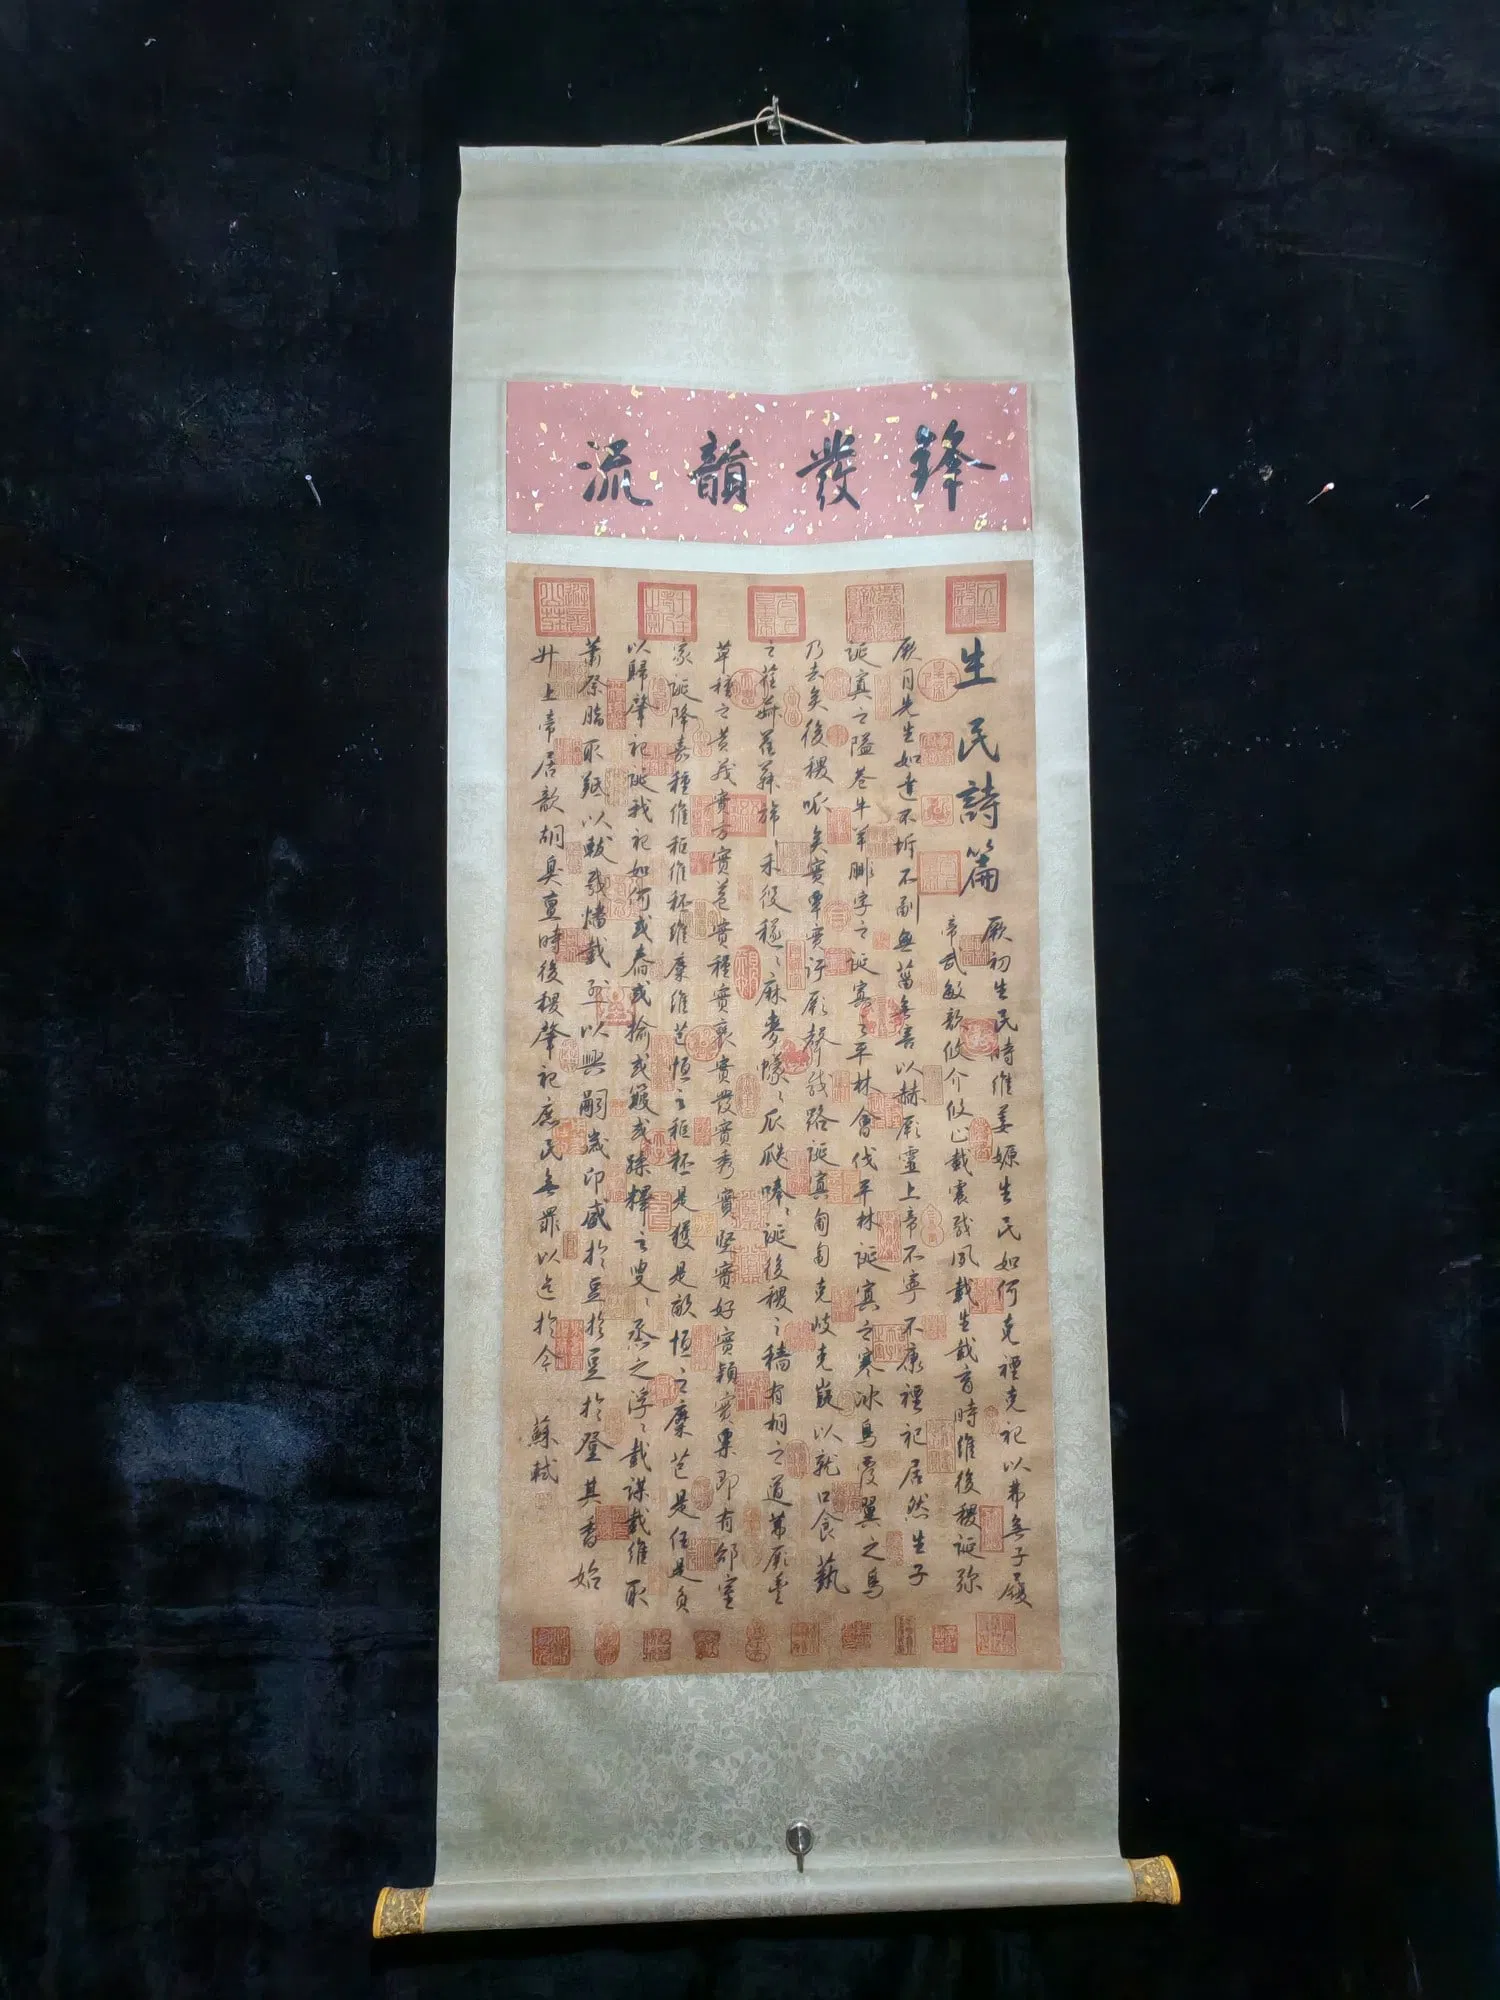 鋒發韻流
生民詩篇
厥初生民時維姜嫄生民如何克禋克祀以弗無子履
帝武敏歆攸介攸止載震載夙載生載育時維後稷誕弥
厥月先生如達不坼不副無菑無害以赫厥靈上帝不寧不康禋祀居然生子
誕寘之隘巷牛羊腓字之誕寘之平林會伐平林誕寘之寒冰鳥覆翼之鳥
乃去矣後稷呱矣實覃實訏厥聲載路誕寘匍匐克岐克嶷以就口食蓺
之荏菽荏菽旆旆禾役穟穟麻麥幪幪瓜瓞唪唪誕後稷之穡有相之道茀厥豐
草種之黃茂實方實苞實種實褎實發實秀實堅實好實穎實栗即有邰室
家誕降嘉種維秬維秠維穈維芑恒之秬秠是穫是畝恒之穈芑是任是負
以歸肇祀誕我祀如何或舂或揄或簸或蹂釋之叟叟烝之浮浮載謀載維取
蕭祭脂取羝以軷載燔載烈以興嗣歲卬盛於豆於豆於登其香始
升上帝居歆胡臭亶時後稷肇祀庶民無罪以迄於今
蘇軾